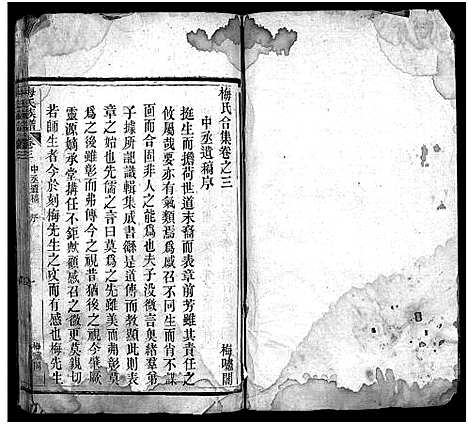 梅氏合集卷之三
中丞遺稿序
梅嘯閣
挺生而擔荷世道末裔而表章前芳雖其責任之
攸屬哉要亦有氣類焉爲感召不同生而有不謀
面而合固非人之能爲也夫子没微言奥緒羣弟
子據所記識輯集成書繇是道傳而教顯此則表
章之始也先儒之言曰莫爲之先雖美而弗彰莫
爲之後雖彰而弗傳今之視昔猶後之視今像厥
靈源嫡承堂搆任不鉅歟顧感召之微更莫親切
若師生者今於刻梅先生之文而有感也梅先生
梅氏族譜
卷三
中丞遺稿
序
梅嘯閣